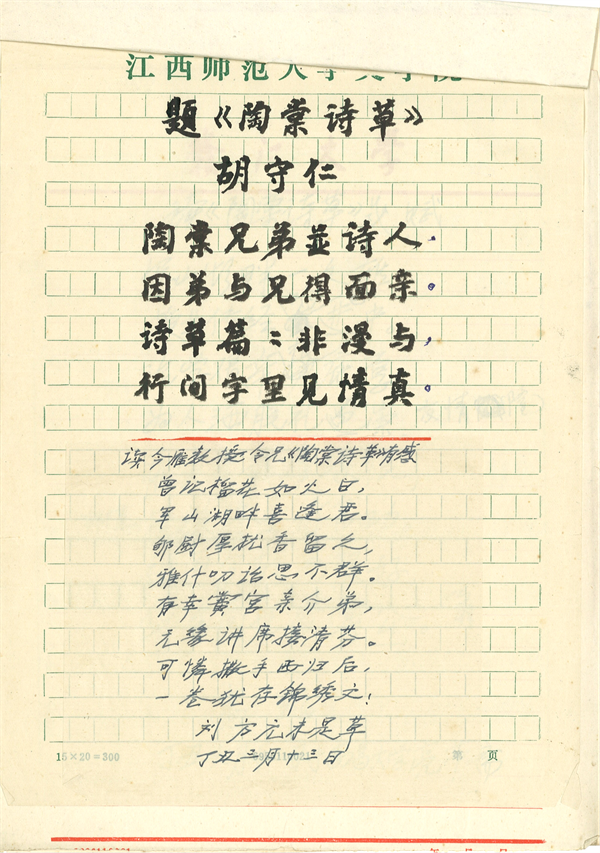 江西师范大学
题《陶棠诗草》
胡守仁
陶棠兄弟並诗人.
因弟与兄得面亲。
诗草篇〻非漫与,
行间字里见情真。
读今雁教授令兄《陶棠诗草》有感
曾记榴花如火日,
军山湖畔喜逢君。
郇厨厚 香留久,
雅什叨诒思不群。
有幸黉宫亲介弟,
无缘讲席 清芬。
可憐撒手西归后,
一卷犹存锦绣文!
刘方元未是草
丁丑三月十三日
15×20=300 第 页